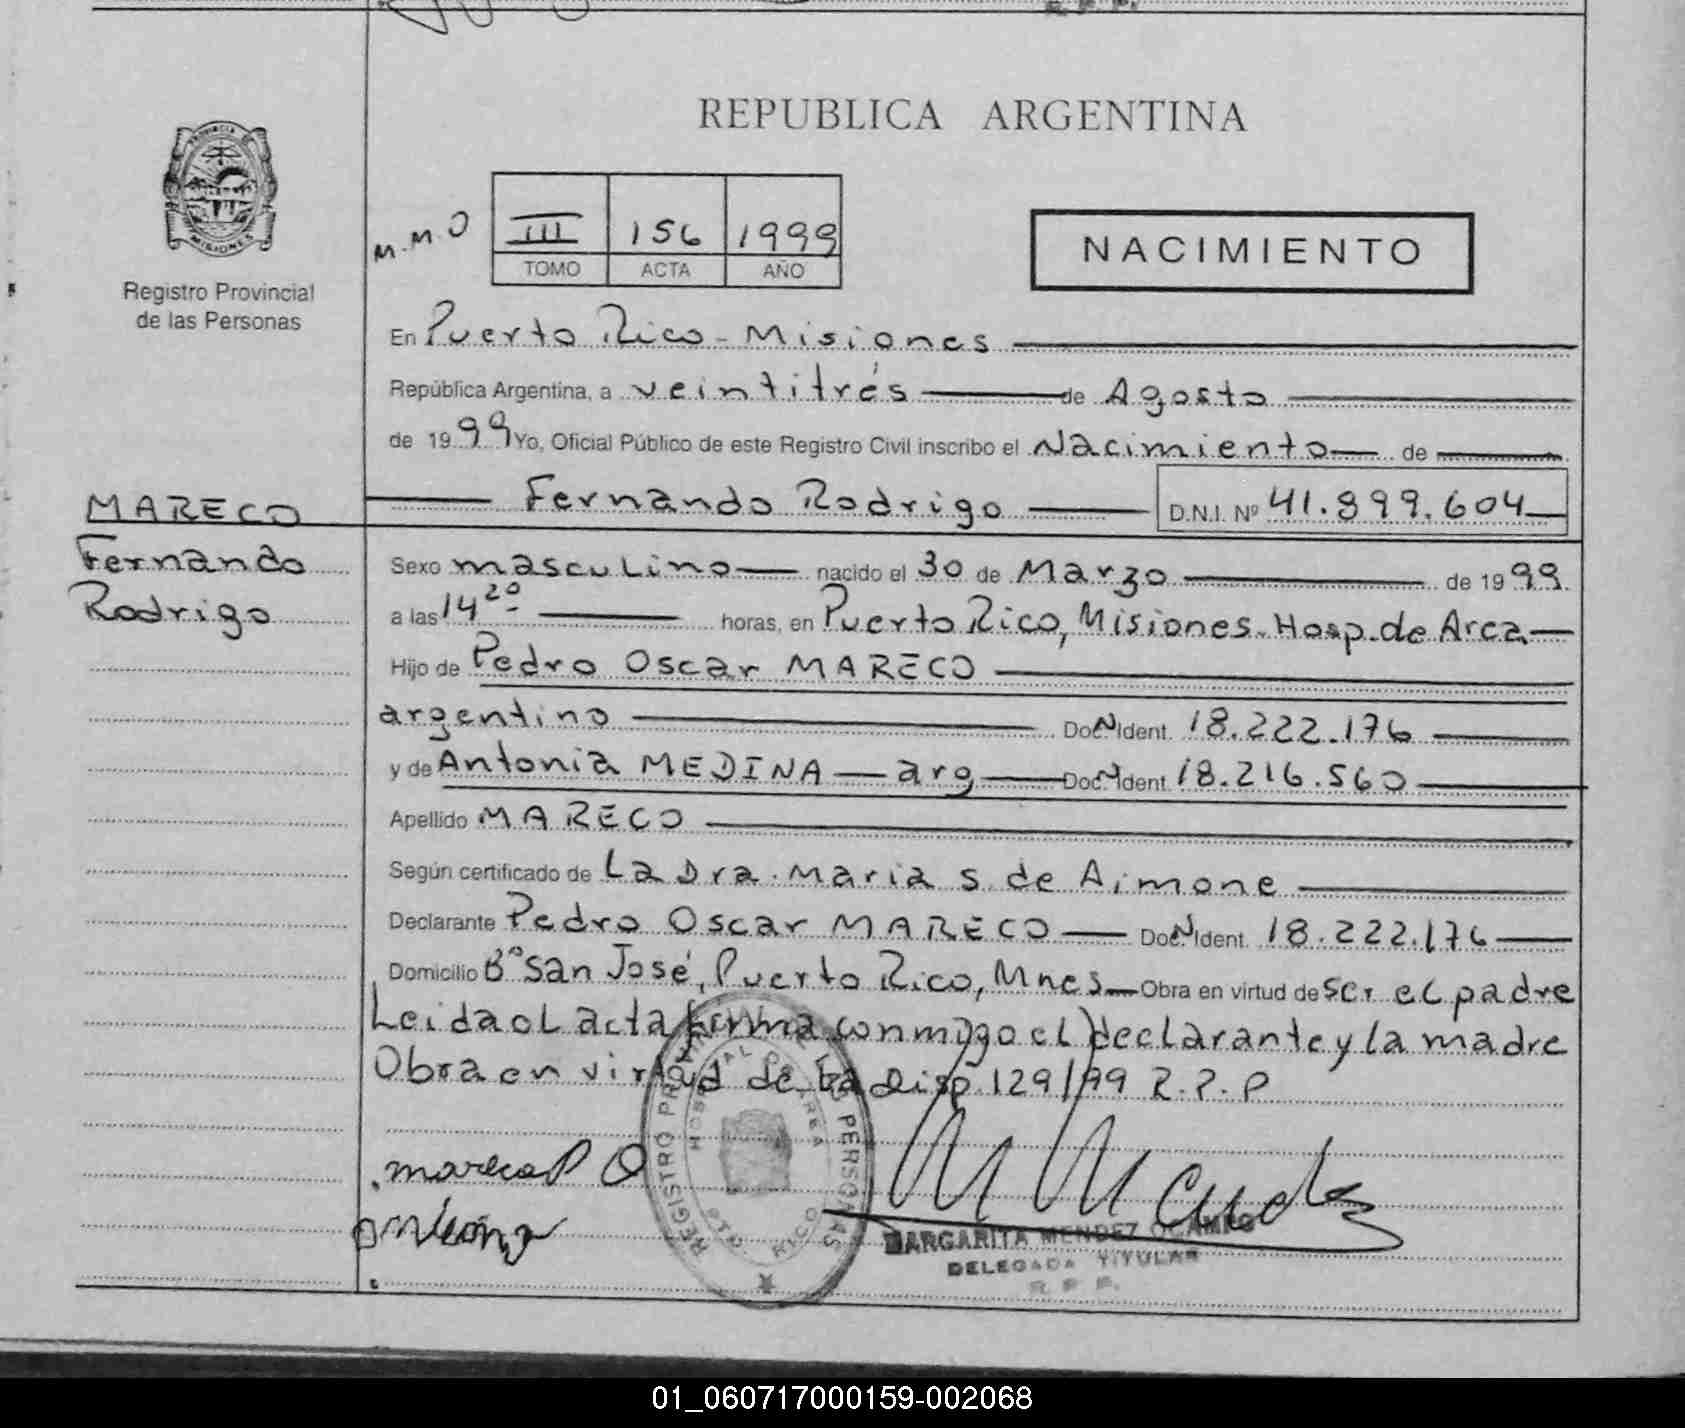 R. P. P.
REPUBLICA ARGENTINA
PROVINCIA
MISIONES
Registro Provincial
de las Personas
M.M.O
III 156 1999
TOMO ACTA AÑO
NACIMIENTO
En Puerto Rico - Misiones
República Argentina, a veintitrés de Agosto
de 1999 Yo, Oficial Público de este Registro Civil inscribo el Nacimiento de
Fernando Rodrigo D.N.I. Nº 41.899.604
MARECO
Fernando
Rodrigo
Sexo masculino nacido el 30 de Marzo de 1999.
a las 14 20 horas, en Puerto Rico, Misiones. Hosp. de Area
Hijo de Pedro Oscar MARECO
argentino Doc. Ident. 18.222.176
y de Antonia MEDINA arg Doc. Ident. 18.216.560
Apellido MARECO
Según certificado de La Dra. Maria S. de Aimone
Declarante Pedro Oscar MARECO Doc. Ident. 18.222.176
Domicilio Bº San José, Puerto Rico, Mnes Obra en virtud de ser el padre
Leida el acta firma conmigo el declarante y la madre
Obra en virtud de la Disp. 129/99 R.P.P
REGISTRO PROVINCIAL DE LAS PERSONAS
HOSPITAL DE AREA
PTO RICO
mareco P O
antonia
MARGARITA MENDEZ OCAMPO
DELEGADA TITULAR
R. P. P.
01_060717000159-002068